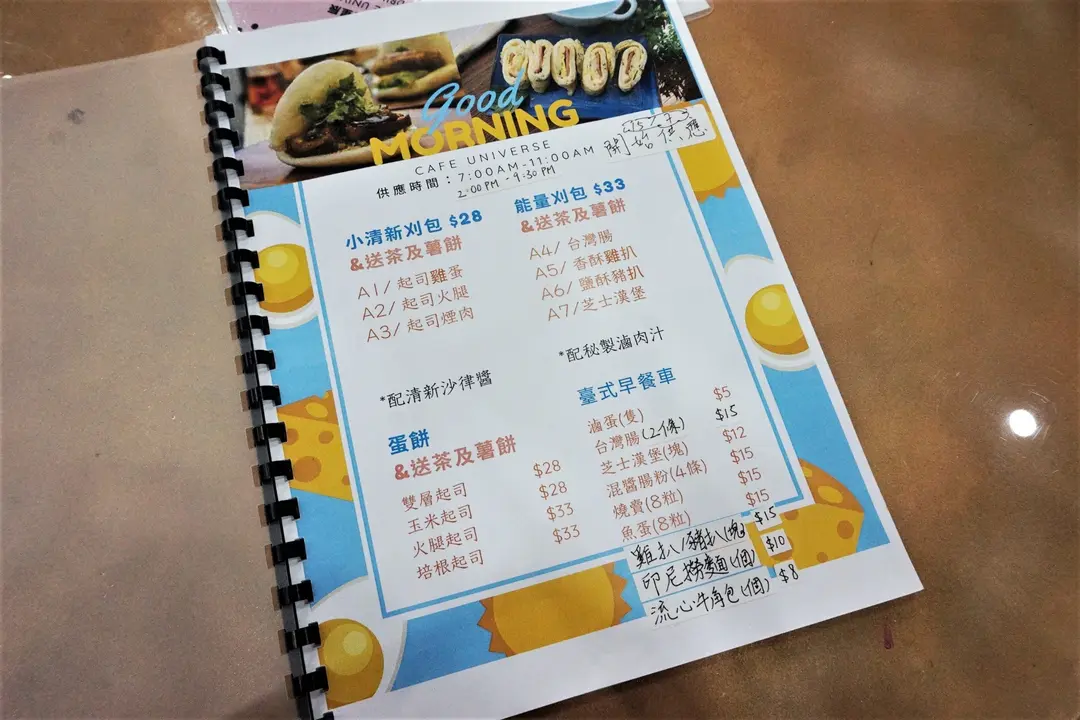 Good
MORNING
CAFE UNIVERSE
供應時間：7:00AM-11:00AM
2:00PM - 9:30PM
開始供應
小清新刈包 $28
&送茶及薯餅
A1/ 起司雞蛋
A2/ 起司火腿
A3/ 起司煙肉
*配清新沙律醬
能量刈包 $33
&送茶及薯餅
A4/ 台灣腸
A5/ 香酥雞扒
A6/ 鹽酥豬扒
A7/ 芝士漢堡
*配秘製滷肉汁
蛋餅
&送茶及薯餅
雙層起司 $28
玉米起司 $28
火腿起司 $33
培根起司 $33
臺式早餐車
滷蛋(隻) $5
台灣腸(2條) $15
芝士漢堡(塊) $12
混醬腸粉(4條) $15
燒賣(8粒) $15
魚蛋(8粒) $15
雞扒/豬扒(塊) $15
印尼撈麵(1個) $10
流心牛角包(1個) $8